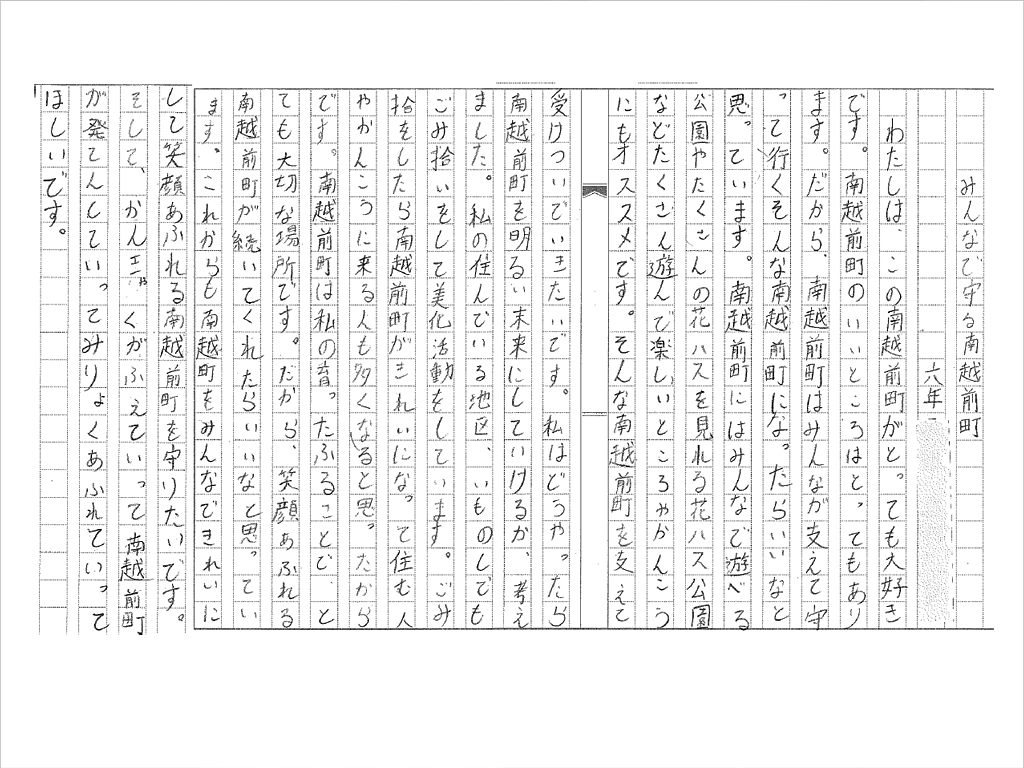 みんなで守る南越前町
六年
わたしは、この南越前町がとっても大好き
です。南越前町のいいところはとってもあり
ます。だから、南越前町はみんなが支えて守
って行くそんな南越前町になったらいいなと
思っています。南越前町にはみんなで遊べる
公園やたくさんの花ハスを見れる花ハス公園
などたくさん遊んで楽しいところやかんこう
にもオススメです。そんな南越前町を支えて
受けついでいきたいです。私はどうやったら
南越前町を明るい未来にしていけるか、考え
ました。私の住んでいる地区、いものしでも
ごみ拾いをして美化活動をしています。ごみ
拾をしたら南越前町がきれいになって住む人
やかんこうに来る人も多くなると思ったから
です。南越前町は私の育ったふるさとで、と
ても大切な場所です。だから、笑顔あふれる
南越前町が続いてくれたらいいなと思ってい
ます。これからも南越町をみんなできれいに
して笑顔あふれる南越前町を守りたいです。
そして、かんこうきゃくがふえていって南越前町
が発てんしていってみりょくあふれていって
ほしいです。